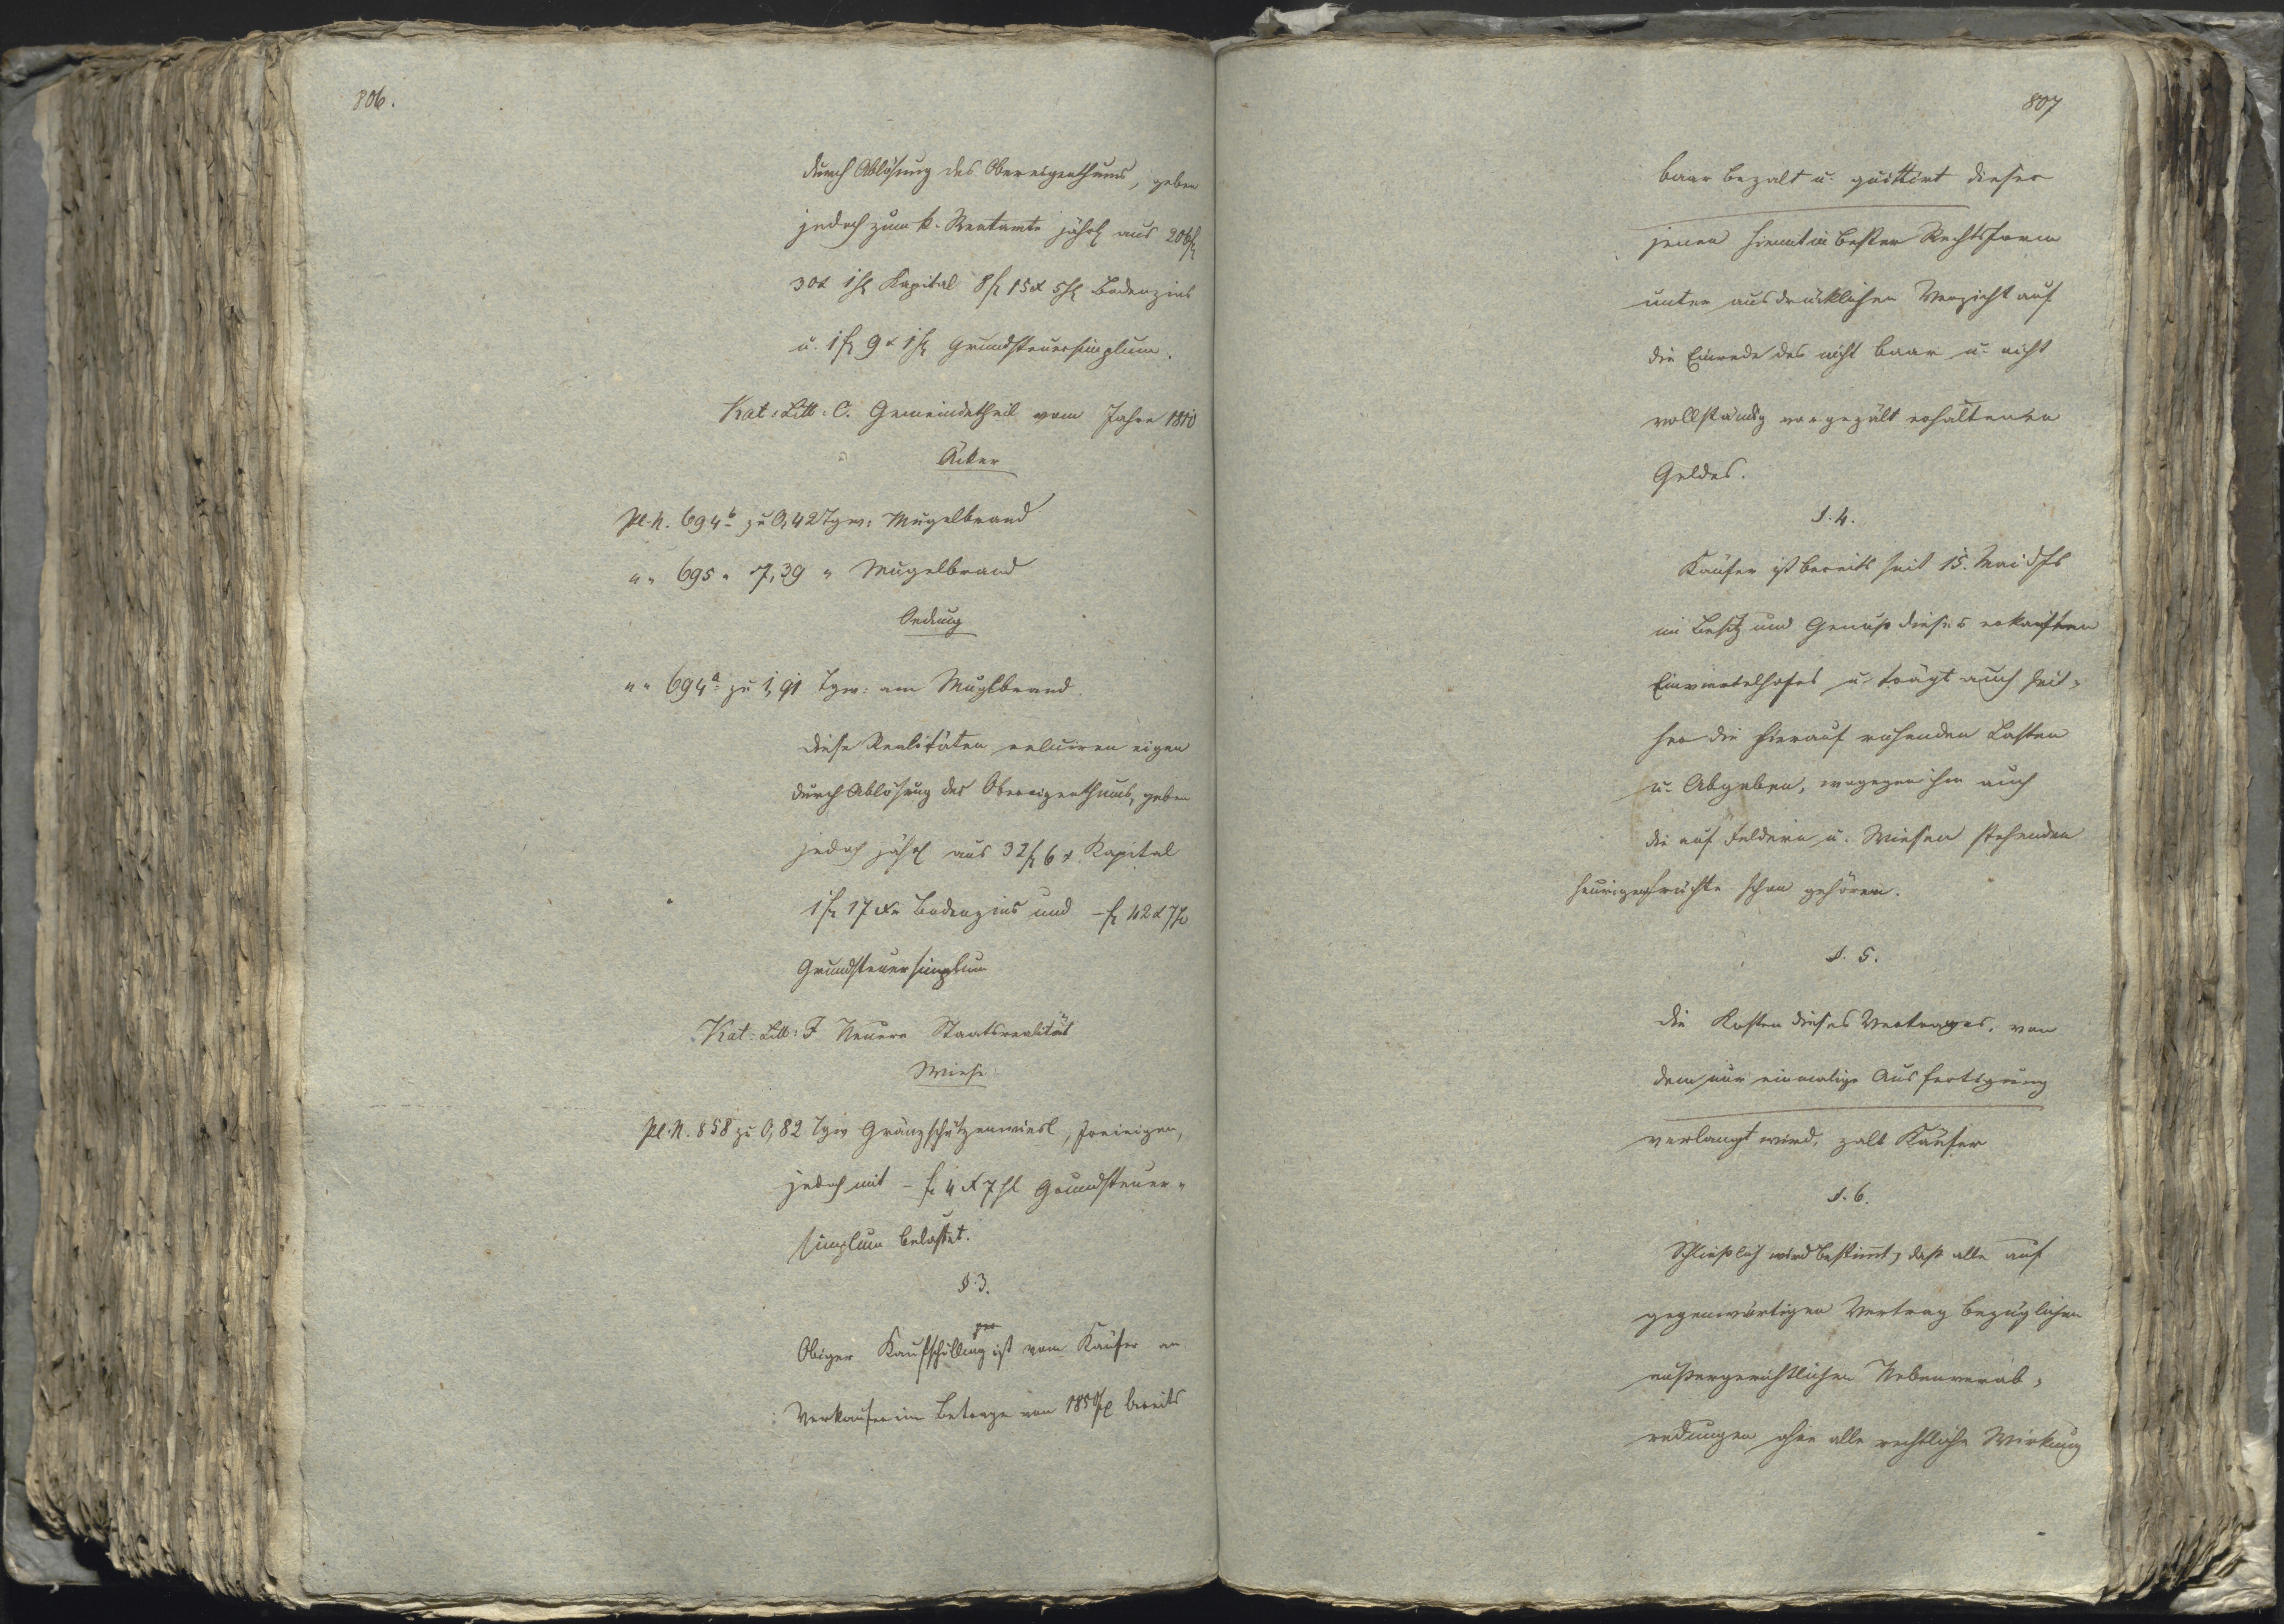 806.
durch Ablösung des Obereigenthums, geben
jedoch zum k. Rentamte jährl aus 206 fl
30 x 1 hl Kapital 8 fl 15 x 5 hl Bodenzins
u. 1 fl 9 x 1 hl Grundsteuersimplum.
Kat: Litt: C. Gemeindetheil vom Jahre 1810
Äcker
Pl. N. 694 b zu 0,42 Tgw: Mugelbrand
" " 695 " 7,39 " Mugelbrand
Oedung
" " 694 a zu 1,91 Tgw: am Muglbrand.
diese Realitäten eigen
durch Ablösung des Obereigenthums, geben
jedoch jährl aus 32 fl 6 x Kapital
1 fl 17 x Bodenzins und – fl 42 x 7 hl
Grundsteuersimplum
Kat: Litt: F Neuere Staatsrealität
Wiese
Pl. N. 858 zu 0,82 Tgw Gränzschützenwiesl, freieigen,
jedoch mit – fl 4 x 7 hl Grundsteuer-
simplum belastet.
§. 3.
Obiger Kaufschilling ist vom Käufer an
Verkäufer im Betrage von 1850 fl bereits
807
baar bezalt u. quittirt dieser
jenen hiemit in bester Rechtsform
unter ausdrücklichem Verzicht auf
die Einrede des nicht baar u. nicht
vollständig vorgezält erhaltenen
Geldes.
§. 4.
Käufer ist bereits seit 15. Mai dJs
im Besitz und Genuß dieses erkauften
Einviertelhofes u. trägt auch seit-
her die hierauf ruhenden Lasten
u. Abgaben, wogegen ihm auch
die auf Feldern u. Wiesen stehenden
heurigen Früchte schon gehören.
§. 5.
die Kosten dieses Vertrages, von
dem nur einmalige Ausfertigung
verlangt wird, zalt Käufer
§. 6.
Schließlich wird bestimt, daß alle auf
gegenwärtigen Vertrag bezüglichen
außergerichtlichen Nebenverab-
redungen ohne alle rechtliche Wirkung